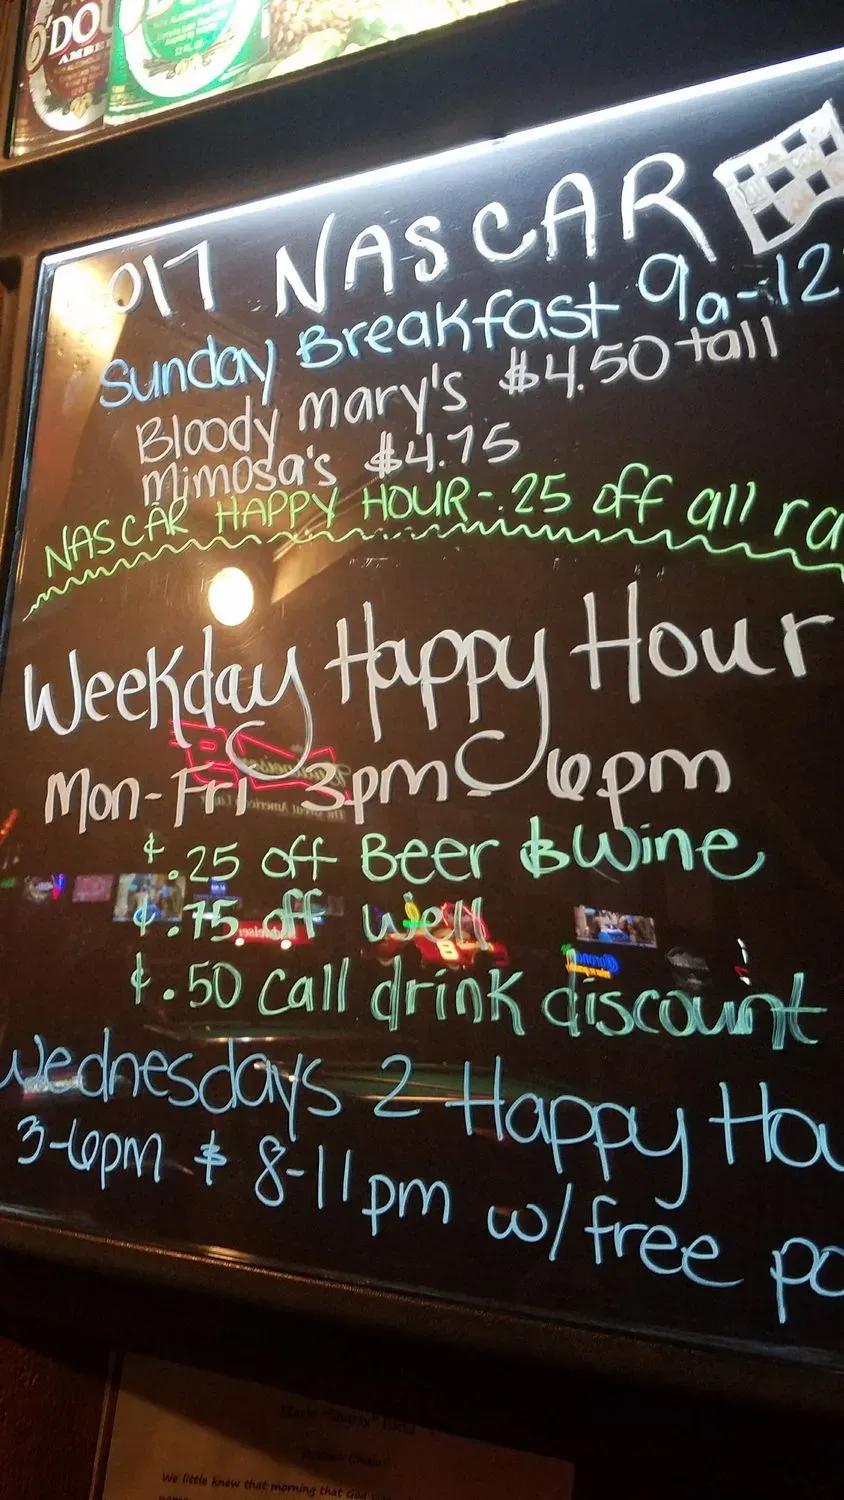 O'DOU
AMBER
017 NASCAR
Sunday Breakfast 9a-12
Bloody mary's $4.50 tall
Mimosa's $4.75
NASCAR HAPPY HOUR-.25 off all ra
Weekday Happy Hour
Mon-Fri 3pm-6pm
$.25 off Beer & Wine
$.75 off well
$.50 call drink discount
Wednesdays 2 Happy Hou
3-6pm & 8-11pm w/free po
We little knew that morning that God